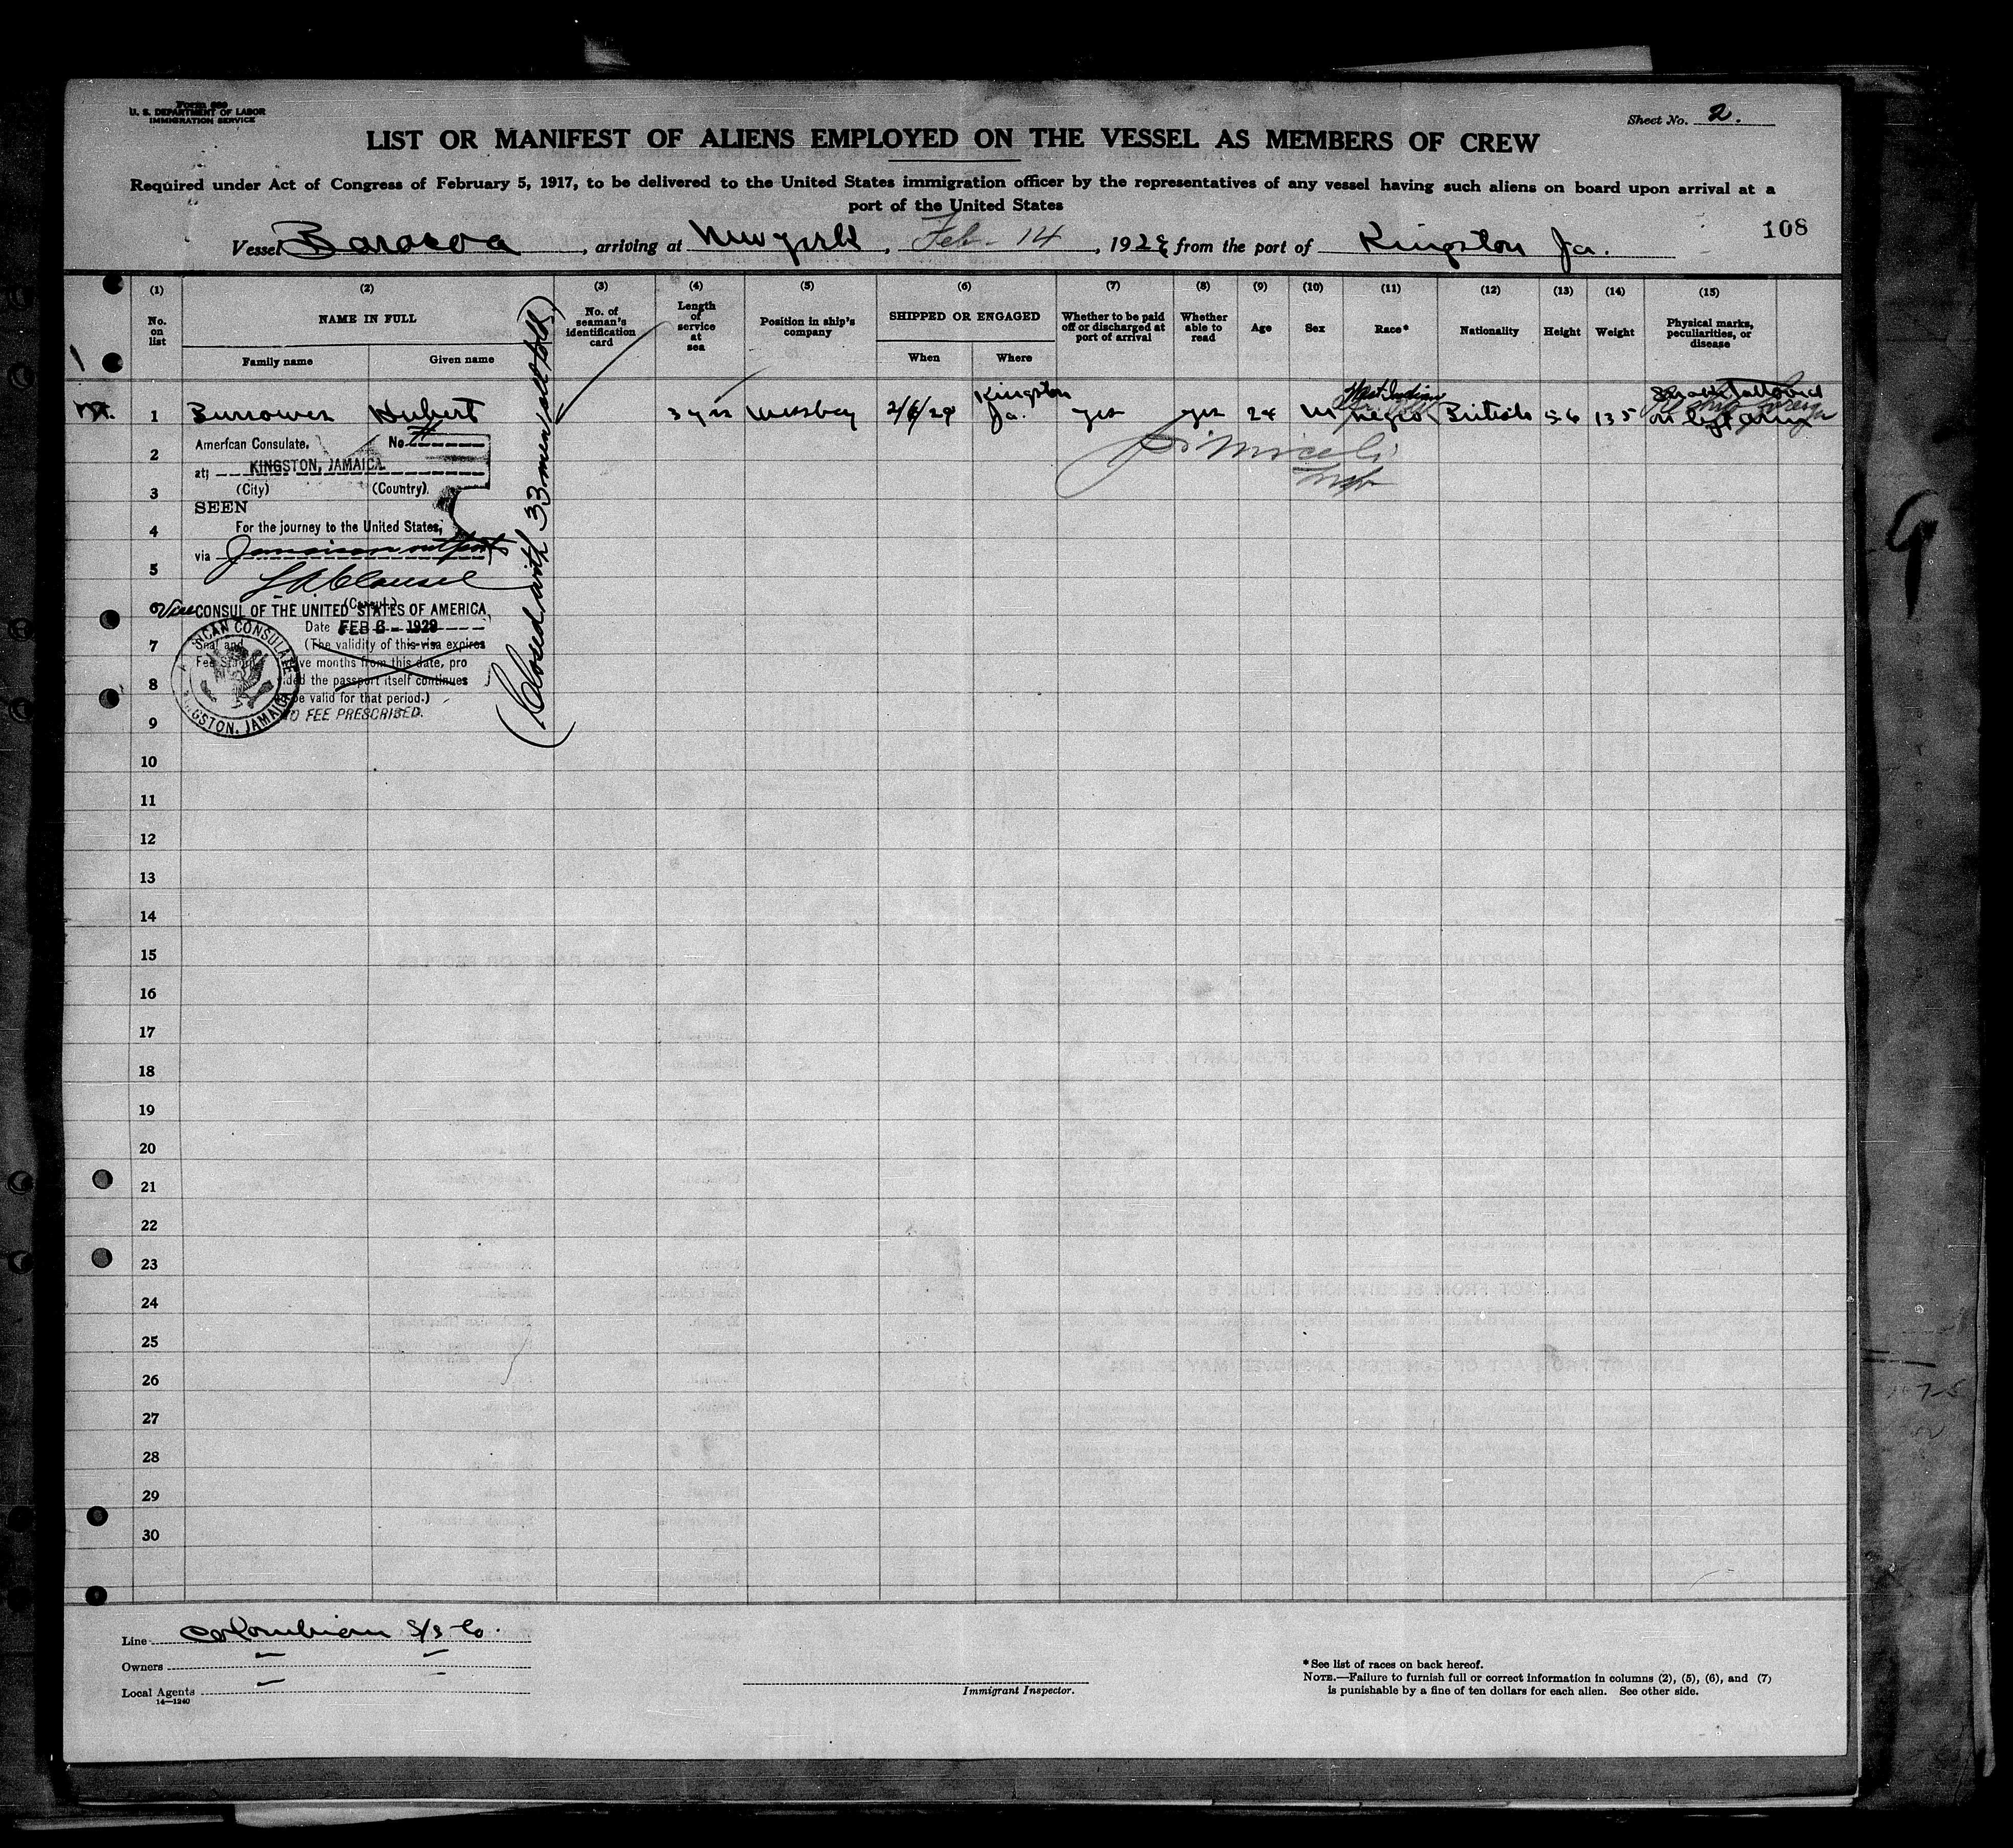 Form 689
U. S. DEPARTMENT OF LABOR
IMMIGRATION SERVICE
Sheet No. 2.
LIST OR MANIFEST OF ALIENS EMPLOYED ON THE VESSEL AS MEMBERS OF CREW
Required under Act of Congress of February 5, 1917, to be delivered to the United States immigration officer by the representatives of any vessel having such aliens on board upon arrival at a
port of the United States
108
Vessel Baracoa, arriving at New york, Feb - 14, 1929 from the port of Kingston Ja.
(1) (2) (3) (4) (5) (6) (7) (8) (9) (10) (11) (12) (13) (14) (15)
No. on list
NAME IN FULL
Family name Given name
No. of seaman's identification card
Length of service at sea
Position in ship's company
SHIPPED OR ENGAGED
When Where
Whether to be paid off or discharged at port of arrival
Whether able to read
Age
Sex
Race*
Nationality
Height
Weight
Physical marks, peculiarities, or disease
1 Burrowes Hubert 3 yrs Messboy 2/6/29 Kingston Ja. yes yes 24 M West Indian negro British 5-6 135 on left arm
American Consulate. No.
at; KINGSTON, JAMAICA.
(City) (Country).
SEEN
For the journey to the United States,
via Jamaican outports
(Consul.)
Vice CONSUL OF THE UNITED STATES OF AMERICA
Date FEB 6 - 1929
(The validity of this visa expires
ve months from this date, pro
ded the passport itself continues
be valid for that period.)
NO FEE PRESCRIBED.
Seal and
Fee Stamp
AMERICAN CONSULATE
KINGSTON, JAMAICA
(Closed with 33 men all told)
2
3
4
5
6
7
8
9
10
11
12
13
14
15
16
17
18
19
20
21
22
23
24
25
26
27
28
29
30
Line Colombian S/S Co.
Owners " "
Local Agents "
14—1240
Immigrant Inspector.
* See list of races on back hereof.
NOTE.—Failure to furnish full or correct information in columns (2), (5), (6), and (7)
is punishable by a fine of ten dollars for each alien. See other side.